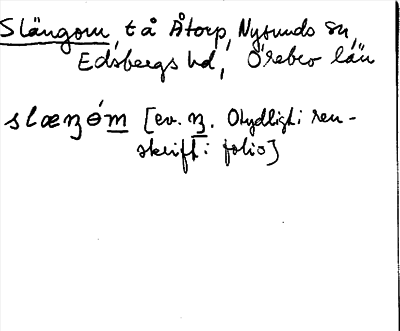 Slängom, tå Åtorp, Nysunds sn,
Edsbergs hd, Örebro län
slæŋó̵m [ev. ŋ. Otydligt i ren-
skrift i folio]